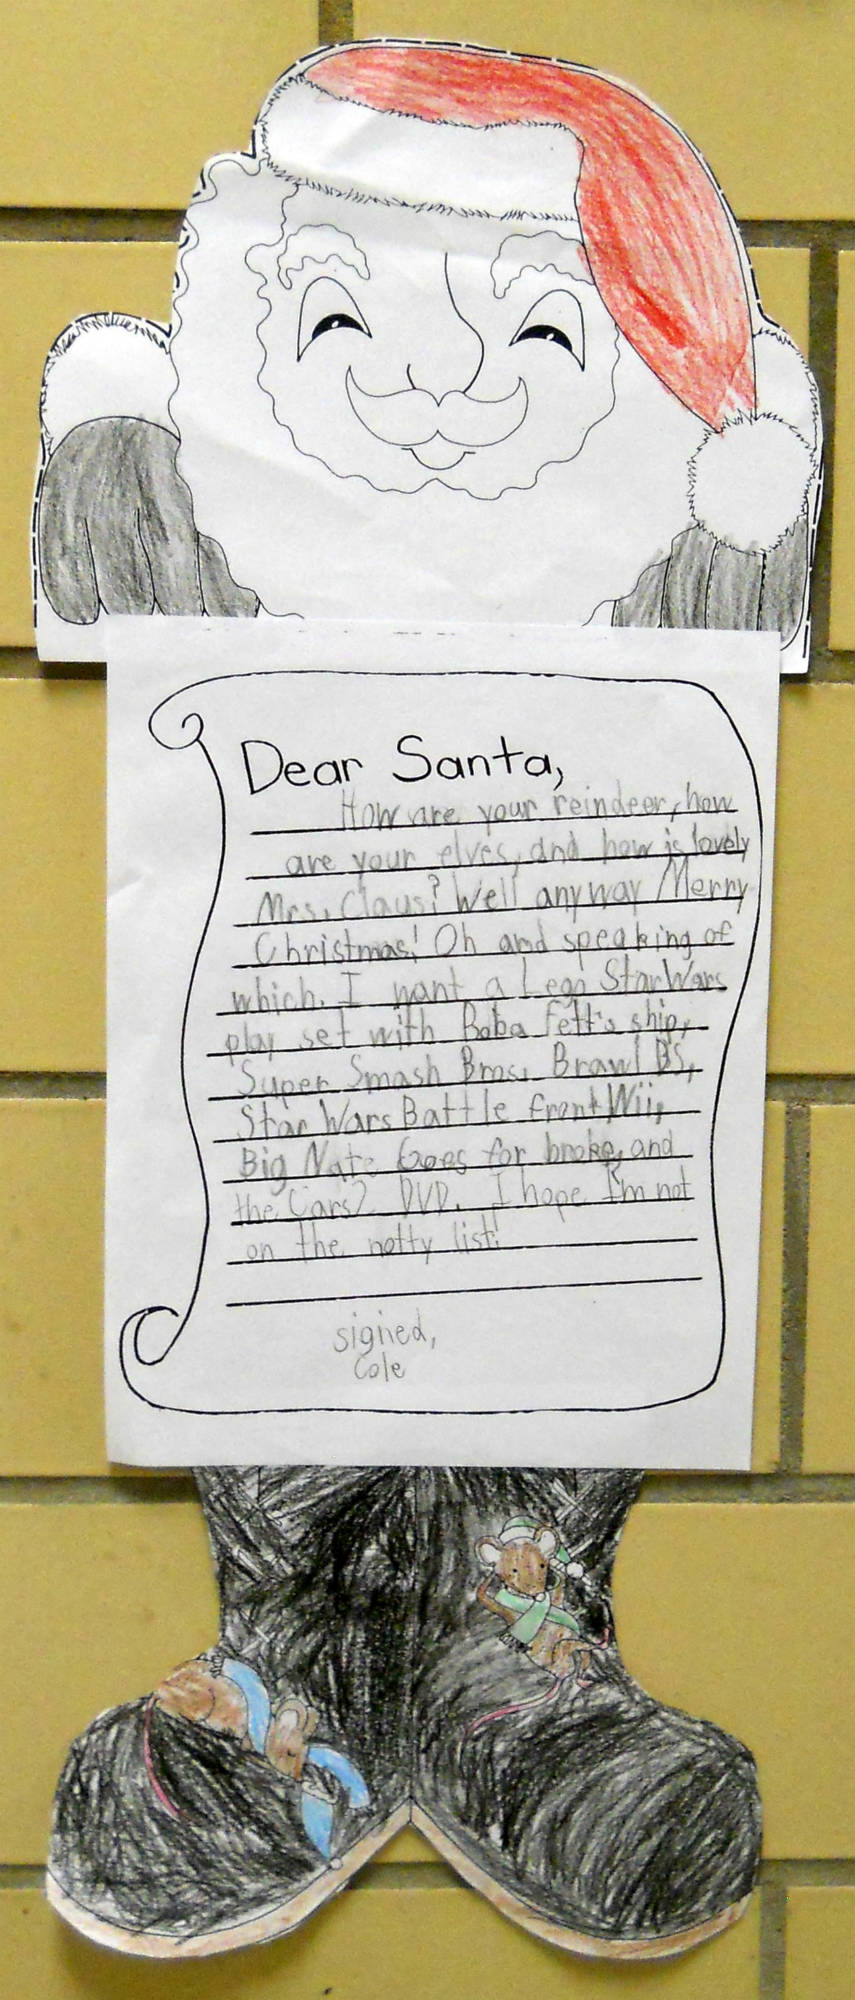 Dear Santa,
How are your reindeer, how
are your elves, and how is lovely
Mrs. Claus? Well anyway Merry
Christmas! Oh and speaking of
which. I want a Lego Star Wars
play set with Boba Fett's ship,
Super Smash Bros. Brawl DS,
Star Wars Battle front Wii,
Big Nate Goes for broke, and
the Cars2 DVD. I hope I'm not
on the notty list!
signed,
Cole